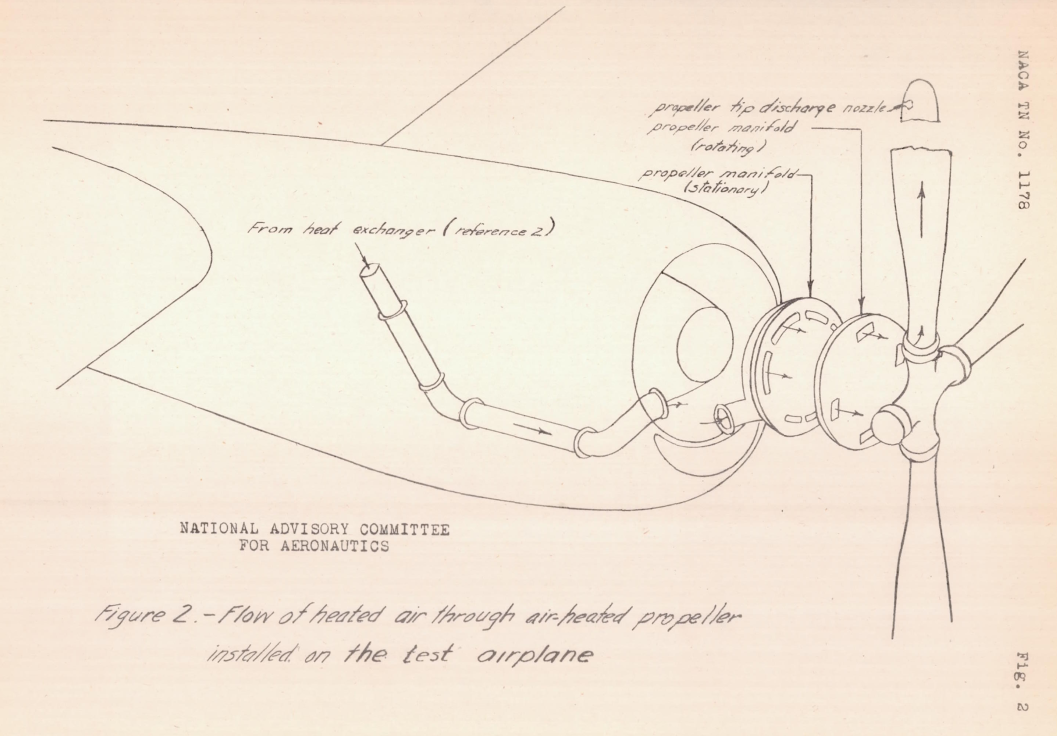 NACA TN No. 1178
propeller tip discharge nozzle
propeller manifold
(rotating)
propeller manifold
(stationary)
From heat exchanger (reference 2)
NATIONAL ADVISORY COMMITTEE
FOR AERONAUTICS
Figure 2.- Flow of heated air through air-heated propeller
installed on the test airplane
Fig. 2